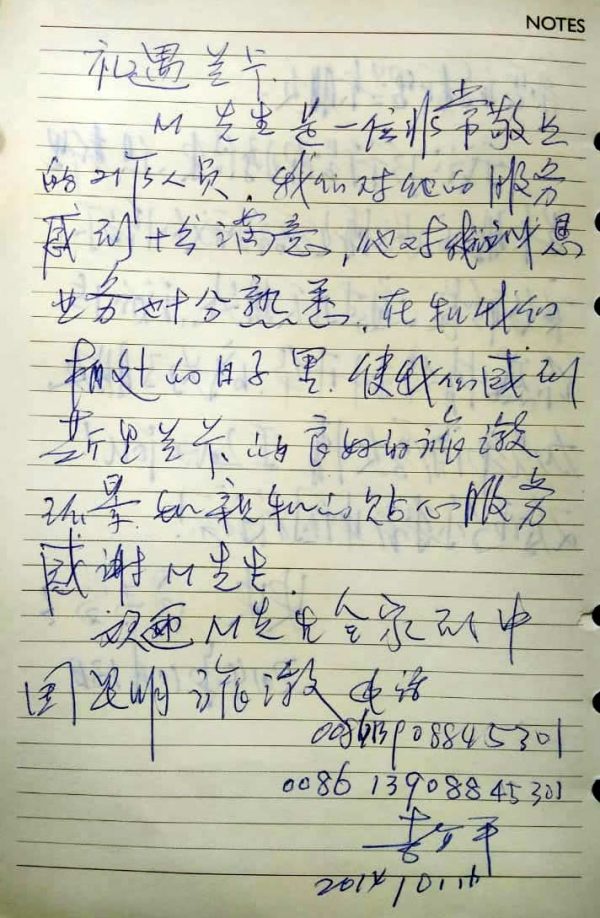 NOTES
礼遇兰卡
M先生是一位非常敬业
的 人员，我们对他的服务
感到十分满意，他对
业务也十分熟悉，在和我们
相处的日子里，使我们感到
斯里兰卡的良好的旅游
环景和亲和的贴心服务
感谢M先生
欢迎M先生全家到中
国昆明旅游 电话
008613908845301
0086 13908845301
平
2014